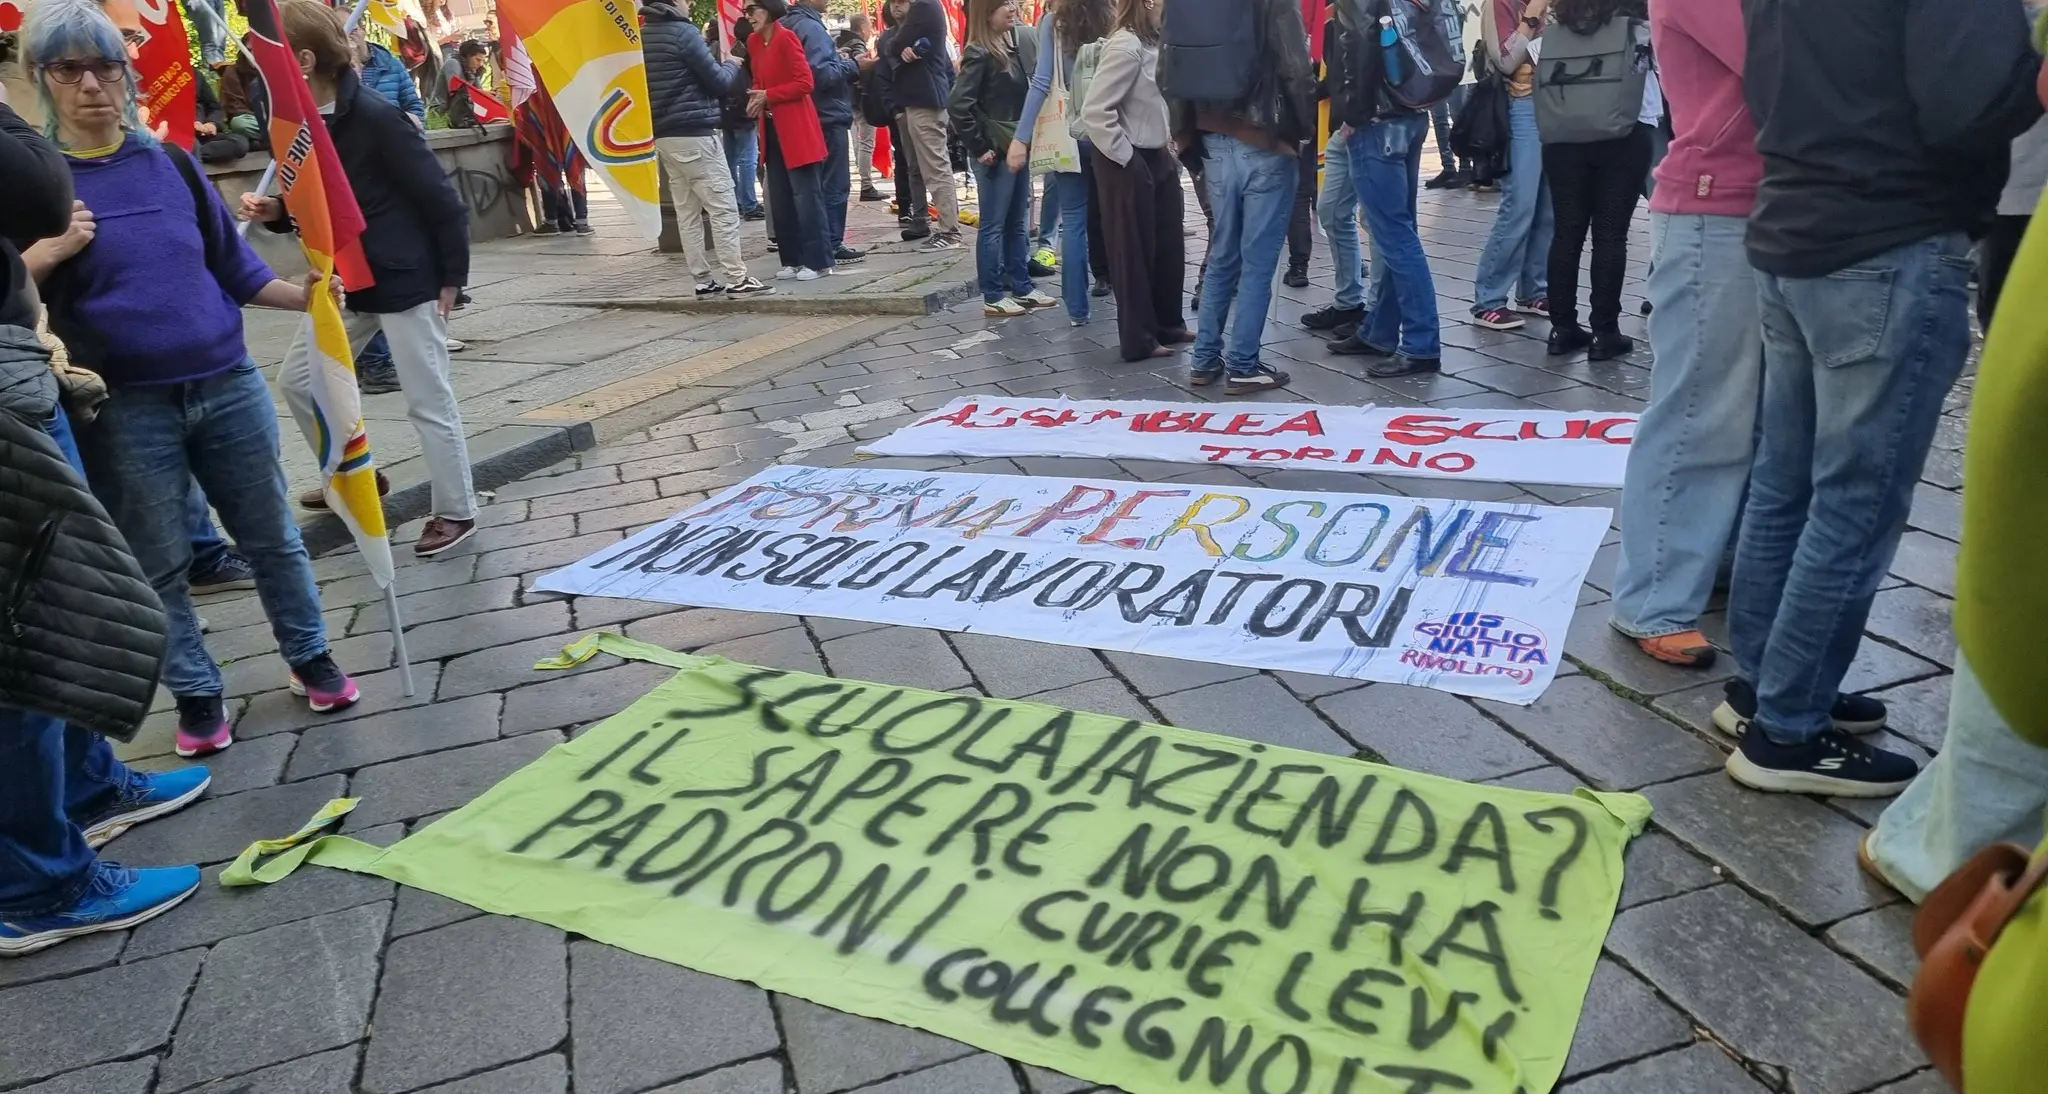 DI BASE
CONFED
DEI COMITAT
ASSEMBLEA SCUO
TORINO
La scuola
FORMA PERSONE
NON SOLO LAVORATORI
IIS
GIULIO
NATTA
RIVOLI (TO)
SCUOLA/AZiENDA?
iL SAPERE NON HA
PADRONi CURIE LEVi
COLLEGNO